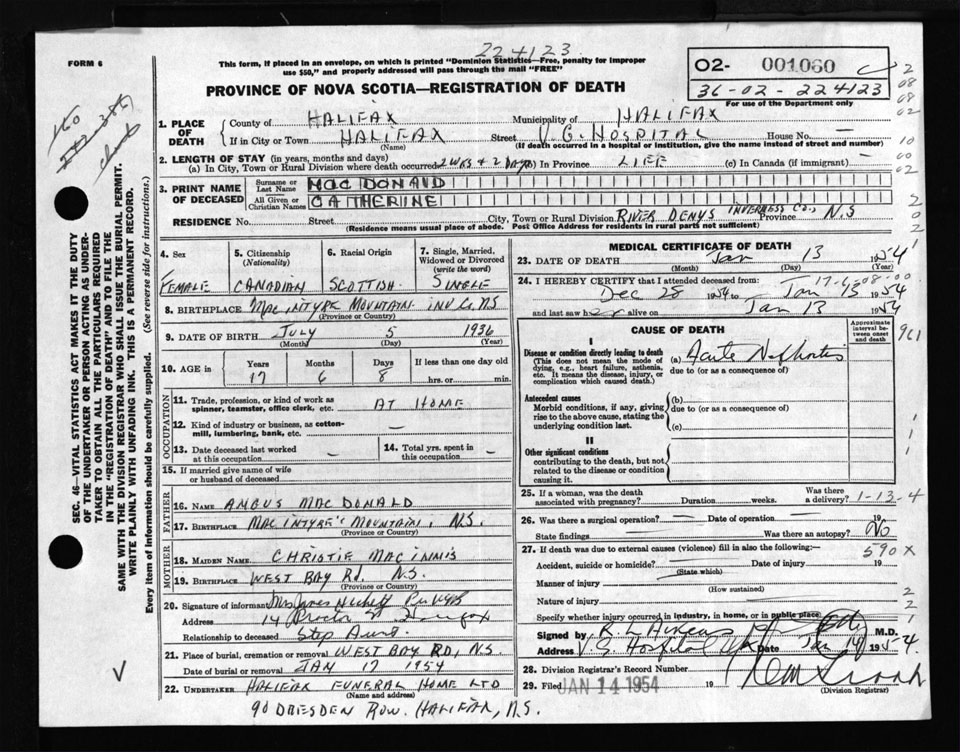 224123
FORM 6
This form, if placed in an envelope, on which is printed "Dominion Statistics—Free, penalty for improper
use $50," and properly addressed will pass through the mail "FREE"
02- 001060
36-02-224123
For use of the Department only
PROVINCE OF NOVA SCOTIA—REGISTRATION OF DEATH
1. PLACE OF DEATH
County of HALIFAX Municipality of HALIFAX
If in City or Town HALIFAX Street V. G. HOSPITAL House No. —
(Name) (If death occurred in a hospital or institution, give the name instead of street and number)
2. LENGTH OF STAY (in years, months and days)
(a) In City, Town or Rural Division where death occurred 2 WKS & 2 DAYS (b) In Province LIFE (c) In Canada (if immigrant) —
3. PRINT NAME OF DECEASED
Surname or Last Name MAC DONALD
All Given or Christian Names CATHERINE
RESIDENCE No. Street City, Town or Rural Division RIVER DENYS INVERNESS CO., Province N.S
(Residence means usual place of abode. Post Office Address for residents in rural parts not sufficient)
4. Sex 5. Citizenship (Nationality) 6. Racial Origin 7. Single, Married, Widowed or Divorced (write the word)
FEMALE CANADIAN SCOTTISH SINGLE
8. BIRTHPLACE MAC INTYRE MOUNTAIN INV CO, N.S
(Province or Country)
9. DATE OF BIRTH JULY 5 1936
(Month) (Day) (Year)
10. AGE in Years Months Days If less than one day old
17 6 8 hrs. or min.
OCCUPATION
11. Trade, profession, or kind of work as spinner, teamster, office clerk, etc. AT HOME
12. Kind of industry or business, as cotton-mill, lumbering, bank, etc. —
13. Date deceased last worked at this occupation — 14. Total yrs. spent in this occupation —
15. If married give name of wife or husband of deceased
FATHER
16. NAME ANGUS MAC DONALD
17. BIRTHPLACE MAC INTYRE'S MOUNTAIN, N.S.
MOTHER
18. MAIDEN NAME CHRISTIE MAC INNIS
19. BIRTHPLACE WEST BAY RD. N.S.
(Province or Country)
20. Signature of informant Mrs James
Address 14 Proctor St Halifax
Relationship to deceased Step Aunt
21. Place of burial, cremation or removal WEST BAY RD, N.S.
Date of burial or removal JAN 17 1954
22. UNDERTAKER HALIFAX FUNERAL HOME LTD
(Name and address)
90 DRESDEN ROW. HALIFAX, N.S.
MEDICAL CERTIFICATE OF DEATH
23. DATE OF DEATH Jan 13 1954
(Month) (Day) (Year)
24. I HEREBY CERTIFY that I attended deceased from:
Dec 28 1954 to Jan 13 1954
and last saw her alive on Jan 13 1954
CAUSE OF DEATH
Approximate interval between onset and death
I
Disease or condition directly leading to death
(This does not mean the mode of dying, e.g., heart failure, asthenia, etc. It means the disease, injury, or complication which caused death.)
(a) Acute Nephritis
due to (or as a consequence of)
Antecedent causes
Morbid conditions, if any, giving rise to the above cause, stating the underlying condition last.
(b)
due to (or as a consequence of)
(c)
II
Other significant conditions
contributing to the death, but not related to the disease or condition causing it.
25. If a woman, was the death associated with pregnancy? Duration weeks. Was there a delivery? 1-13-4
26. Was there a surgical operation? — Date of operation — 19
State findings Was there an autopsy? No
27. If death was due to external causes (violence) fill in also the following:— 590X
Accident, suicide or homicide? Date of injury 19
(State which)
Manner of injury
(How sustained)
Nature of injury
Specify whether injury occurred in industry, in home, or in public place
Signed by M.D.
Address V. G. Hospital Date Jan 14 1954
28. Division Registrar's Record Number
29. Filed JAN 14 1954 19
(Division Registrar)
SEC. 46—VITAL STATISTICS ACT MAKES IT THE DUTY
OF THE UNDERTAKER OR PERSON ACTING AS UNDER-
TAKER TO OBTAIN ALL THE PARTICULARS REQUIRED
IN THE "REGISTRATION OF DEATH" AND TO FILE THE
SAME WITH THE DIVISION REGISTRAR WHO SHALL ISSUE THE BURIAL PERMIT.
WRITE PLAINLY WITH UNFADING INK. THIS IS A PERMANENT RECORD.
Every item of information should be carefully supplied. (See reverse side for instructions.)